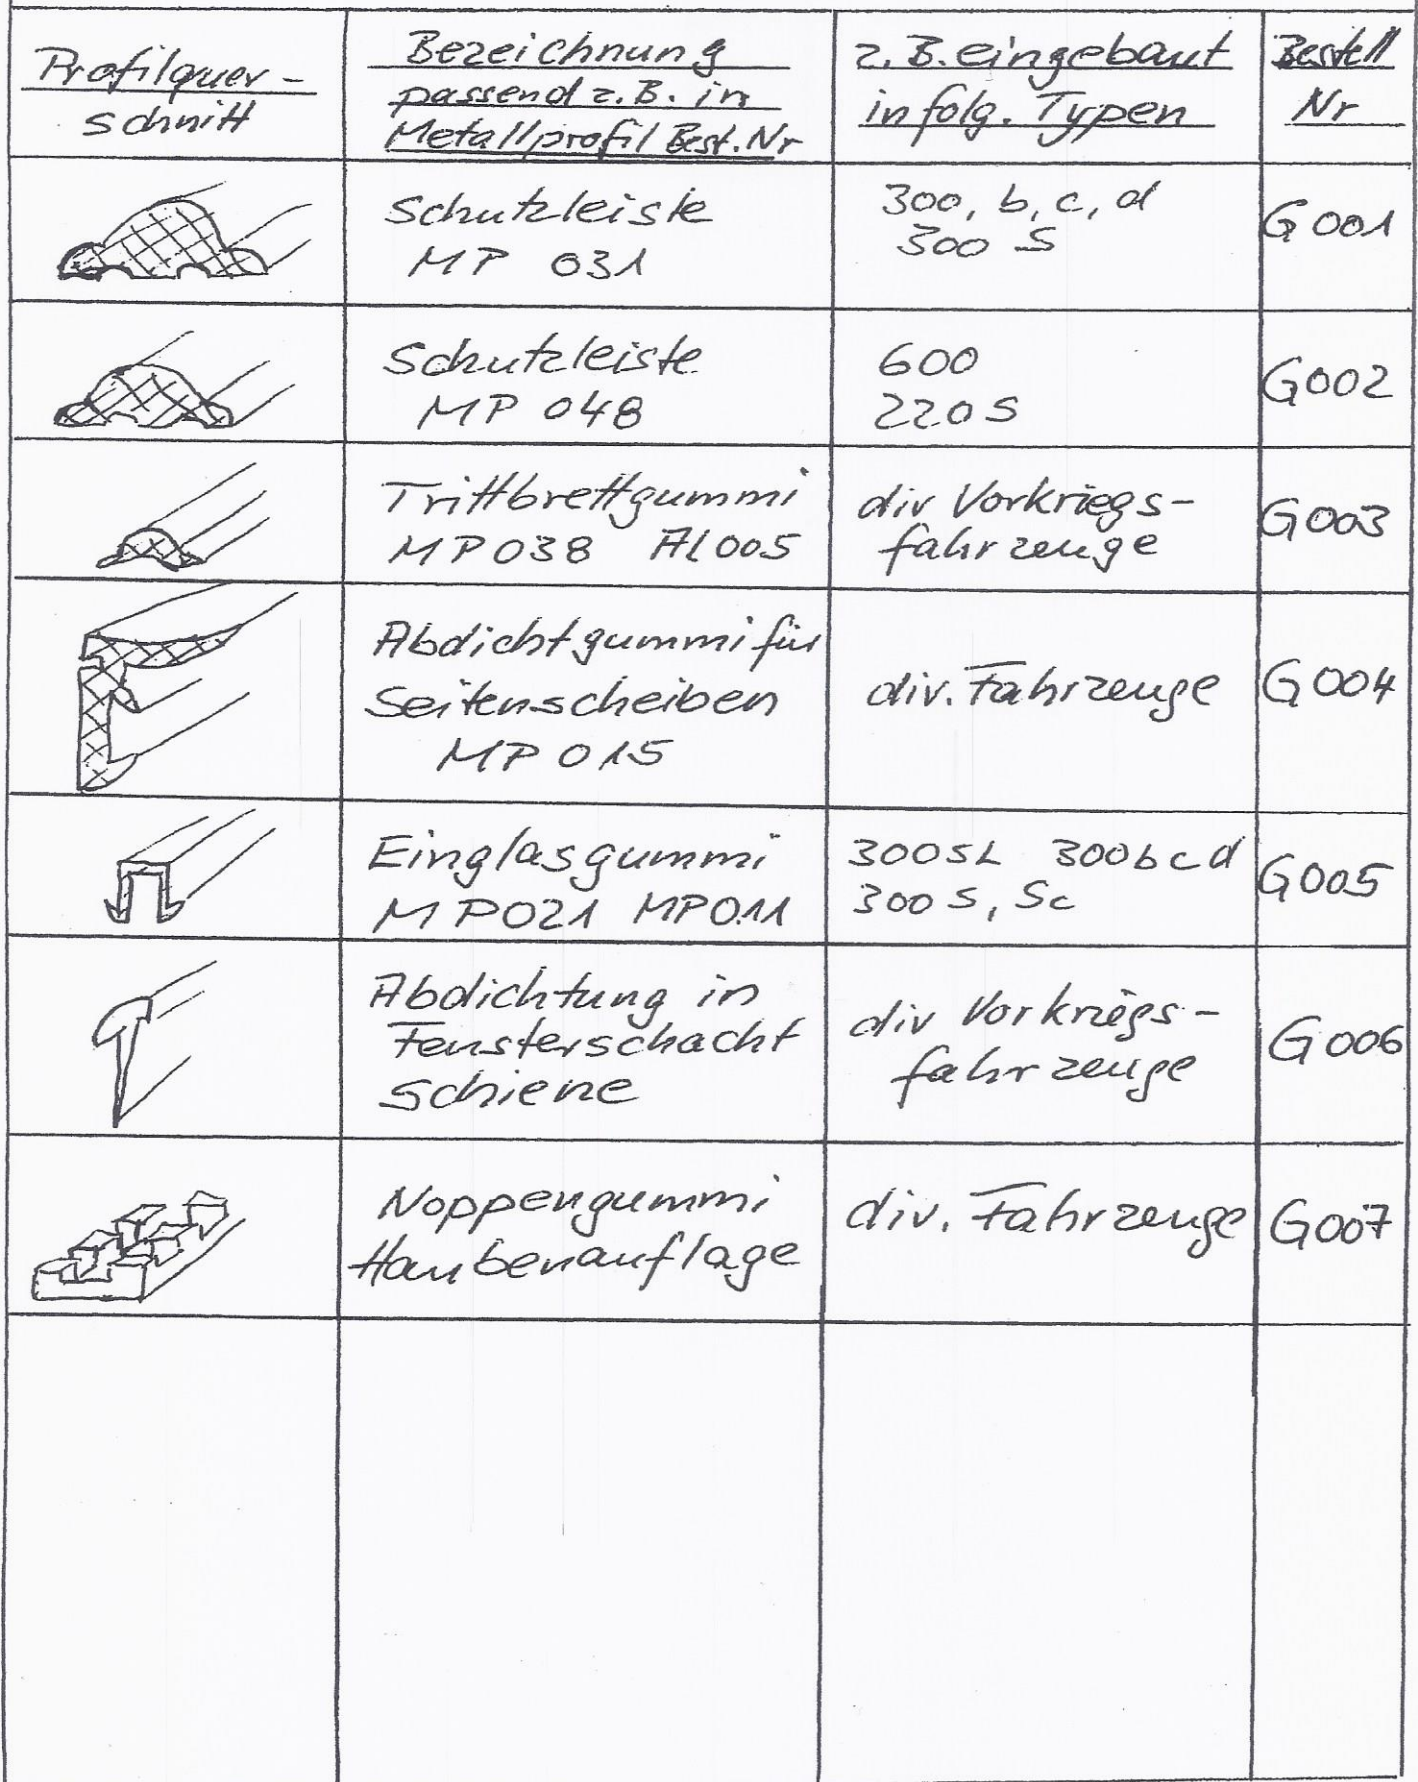 Profilquer-
schnitt
Bezeichnung
passend z.B. in
Metallprofil Best.Nr
z.B. eingebaut
in folg. Typen
Bestell
Nr
Schutzleiste
MP 031
300, b, c, d
300 S
G001
Schutzleiste
MP 048
600
220S
G002
Trittbrettgummi
MP038 AL005
div Vorkriegs-
fahrzeuge
G003
Abdichtgummi für
Seitenscheiben
MP 015
div. Fahrzeuge
G004
Einglasgummi
MP021 MP011
300SL 300bcd
300S, Sc
G005
Abdichtung in
Fensterschacht
schiene
div Vorkriegs-
fahrzeuge
G006
Noppengummi
Haubenauflage
div. Fahrzeuge
G007